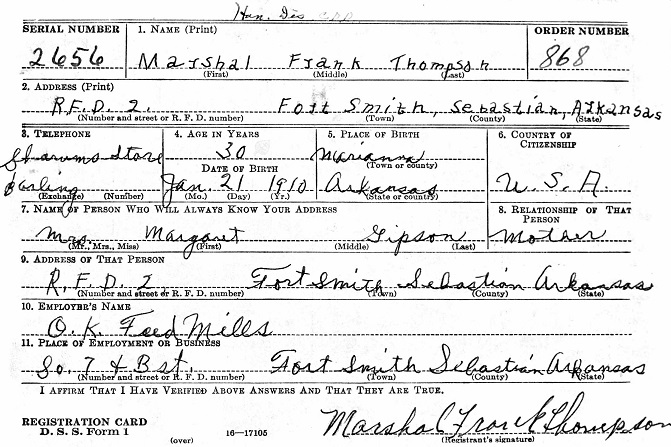 Han. Dis
SERIAL NUMBER 1. NAME (Print) ORDER NUMBER
2656 Marshal Frank Thompson 868
(First) (Middle) (Last)
2. ADDRESS (Print)
R.F.D. 2. Fort Smith, Sebastian, Arkansas
(Number and street or R. F. D. number) (Town) (County) (State)
3. TELEPHONE 4. AGE IN YEARS 5. PLACE OF BIRTH 6. COUNTRY OF CITIZENSHIP
Sharums Store 30 Marianna
DATE OF BIRTH (Town or county)
Barling Jan. 21 1910 Arkansas U.S.A.
(Exchange) (Number) (Mo.) (Day) (Yr.) (State or country)
7. NAME OF PERSON WHO WILL ALWAYS KNOW YOUR ADDRESS 8. RELATIONSHIP OF THAT PERSON
Mrs. Margaret Gipson Mother
(Mr., Mrs., Miss) (First) (Middle) (Last)
9. ADDRESS OF THAT PERSON
R.F.D. 2 Fort Smith Sebastian Arkansas
(Number and street or R. F. D. number) (Town) (County) (State)
10. EMPLOYER'S NAME
O.K. Feed Mills
11. PLACE OF EMPLOYMENT OR BUSINESS
So. 7 & B st. Fort Smith Sebastian Arkansas
(Number and street or R. F. D. number) (Town) (County) (State)
I AFFIRM THAT I HAVE VERIFIED ABOVE ANSWERS AND THAT THEY ARE TRUE.
REGISTRATION CARD
D. S. S. Form 1
(over) 16—17105
Marshal Frank Thompson
(Registrant's signature)